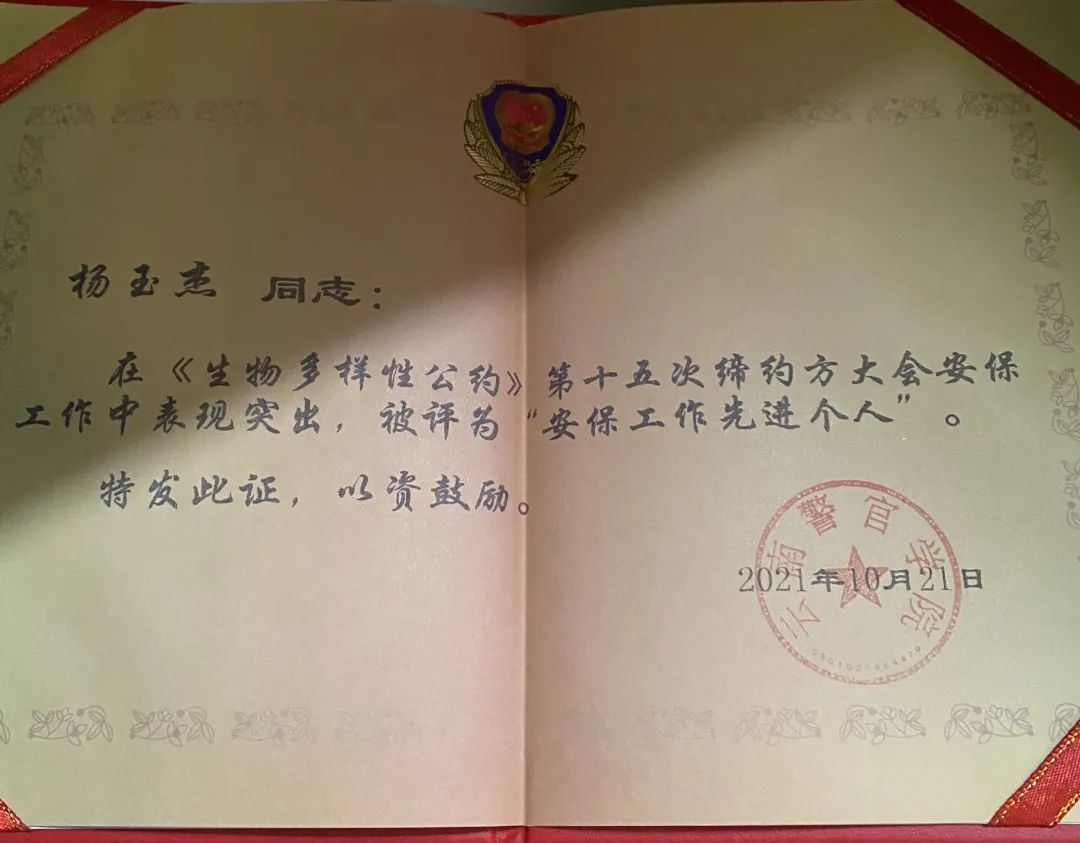 杨玉杰 同志：
在《生物多样性公约》第十五次缔约方大会安保
工作中表现突出，被评为“安保工作先进个人”。
特发此证，以资鼓励。
云南警官学院
2021年10月21日